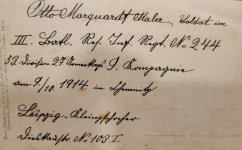 Otto Marquardt Maler Soldat im
III. Batl. Res. Inf. Regt. No 244
53. Division 27. Armeekorps 9. Kompagnie
am 9./10. 1914 in Chemnitz
Leipzig-Kleinzschocher
Dieskaustr. No 103 I